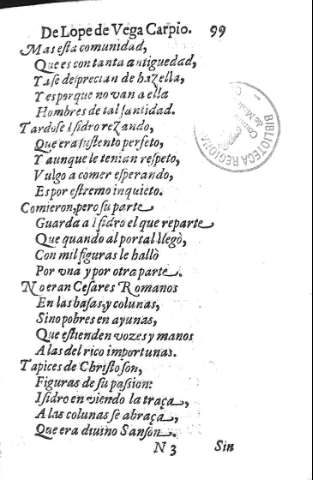 De Lope de Vega Carpio. 99
Mas esta comunidad,
Que es con tanta antiguedad,
Y a se desprecian de hazella,
Y es porque no van a ella
Hombres de tal santidad.
Tardose Isidro rezando,
Que era sustento perfeto,
Y aunque le tenian respeto,
Vulgo a comer esperando,
Es por estremo inquieto.
Comieron, pero su parte
Guarda a Isidro el que reparte
Que quando al portal llegò,
Con mil figuras le hallò
Por vna y por otra parte.
No eran Cesares Romanos
En las basas, y colunas,
Sino pobres en ayunas,
Que estienden vozes y manos
A las del rico importunas.
Tapices de Christo son,
Figuras de su passion:
Isidro en viendo la traça,
A las colunas se abraça,
Que era diuino Sanson.
N 3 Sin
BIBLIOTECA REGIONAL